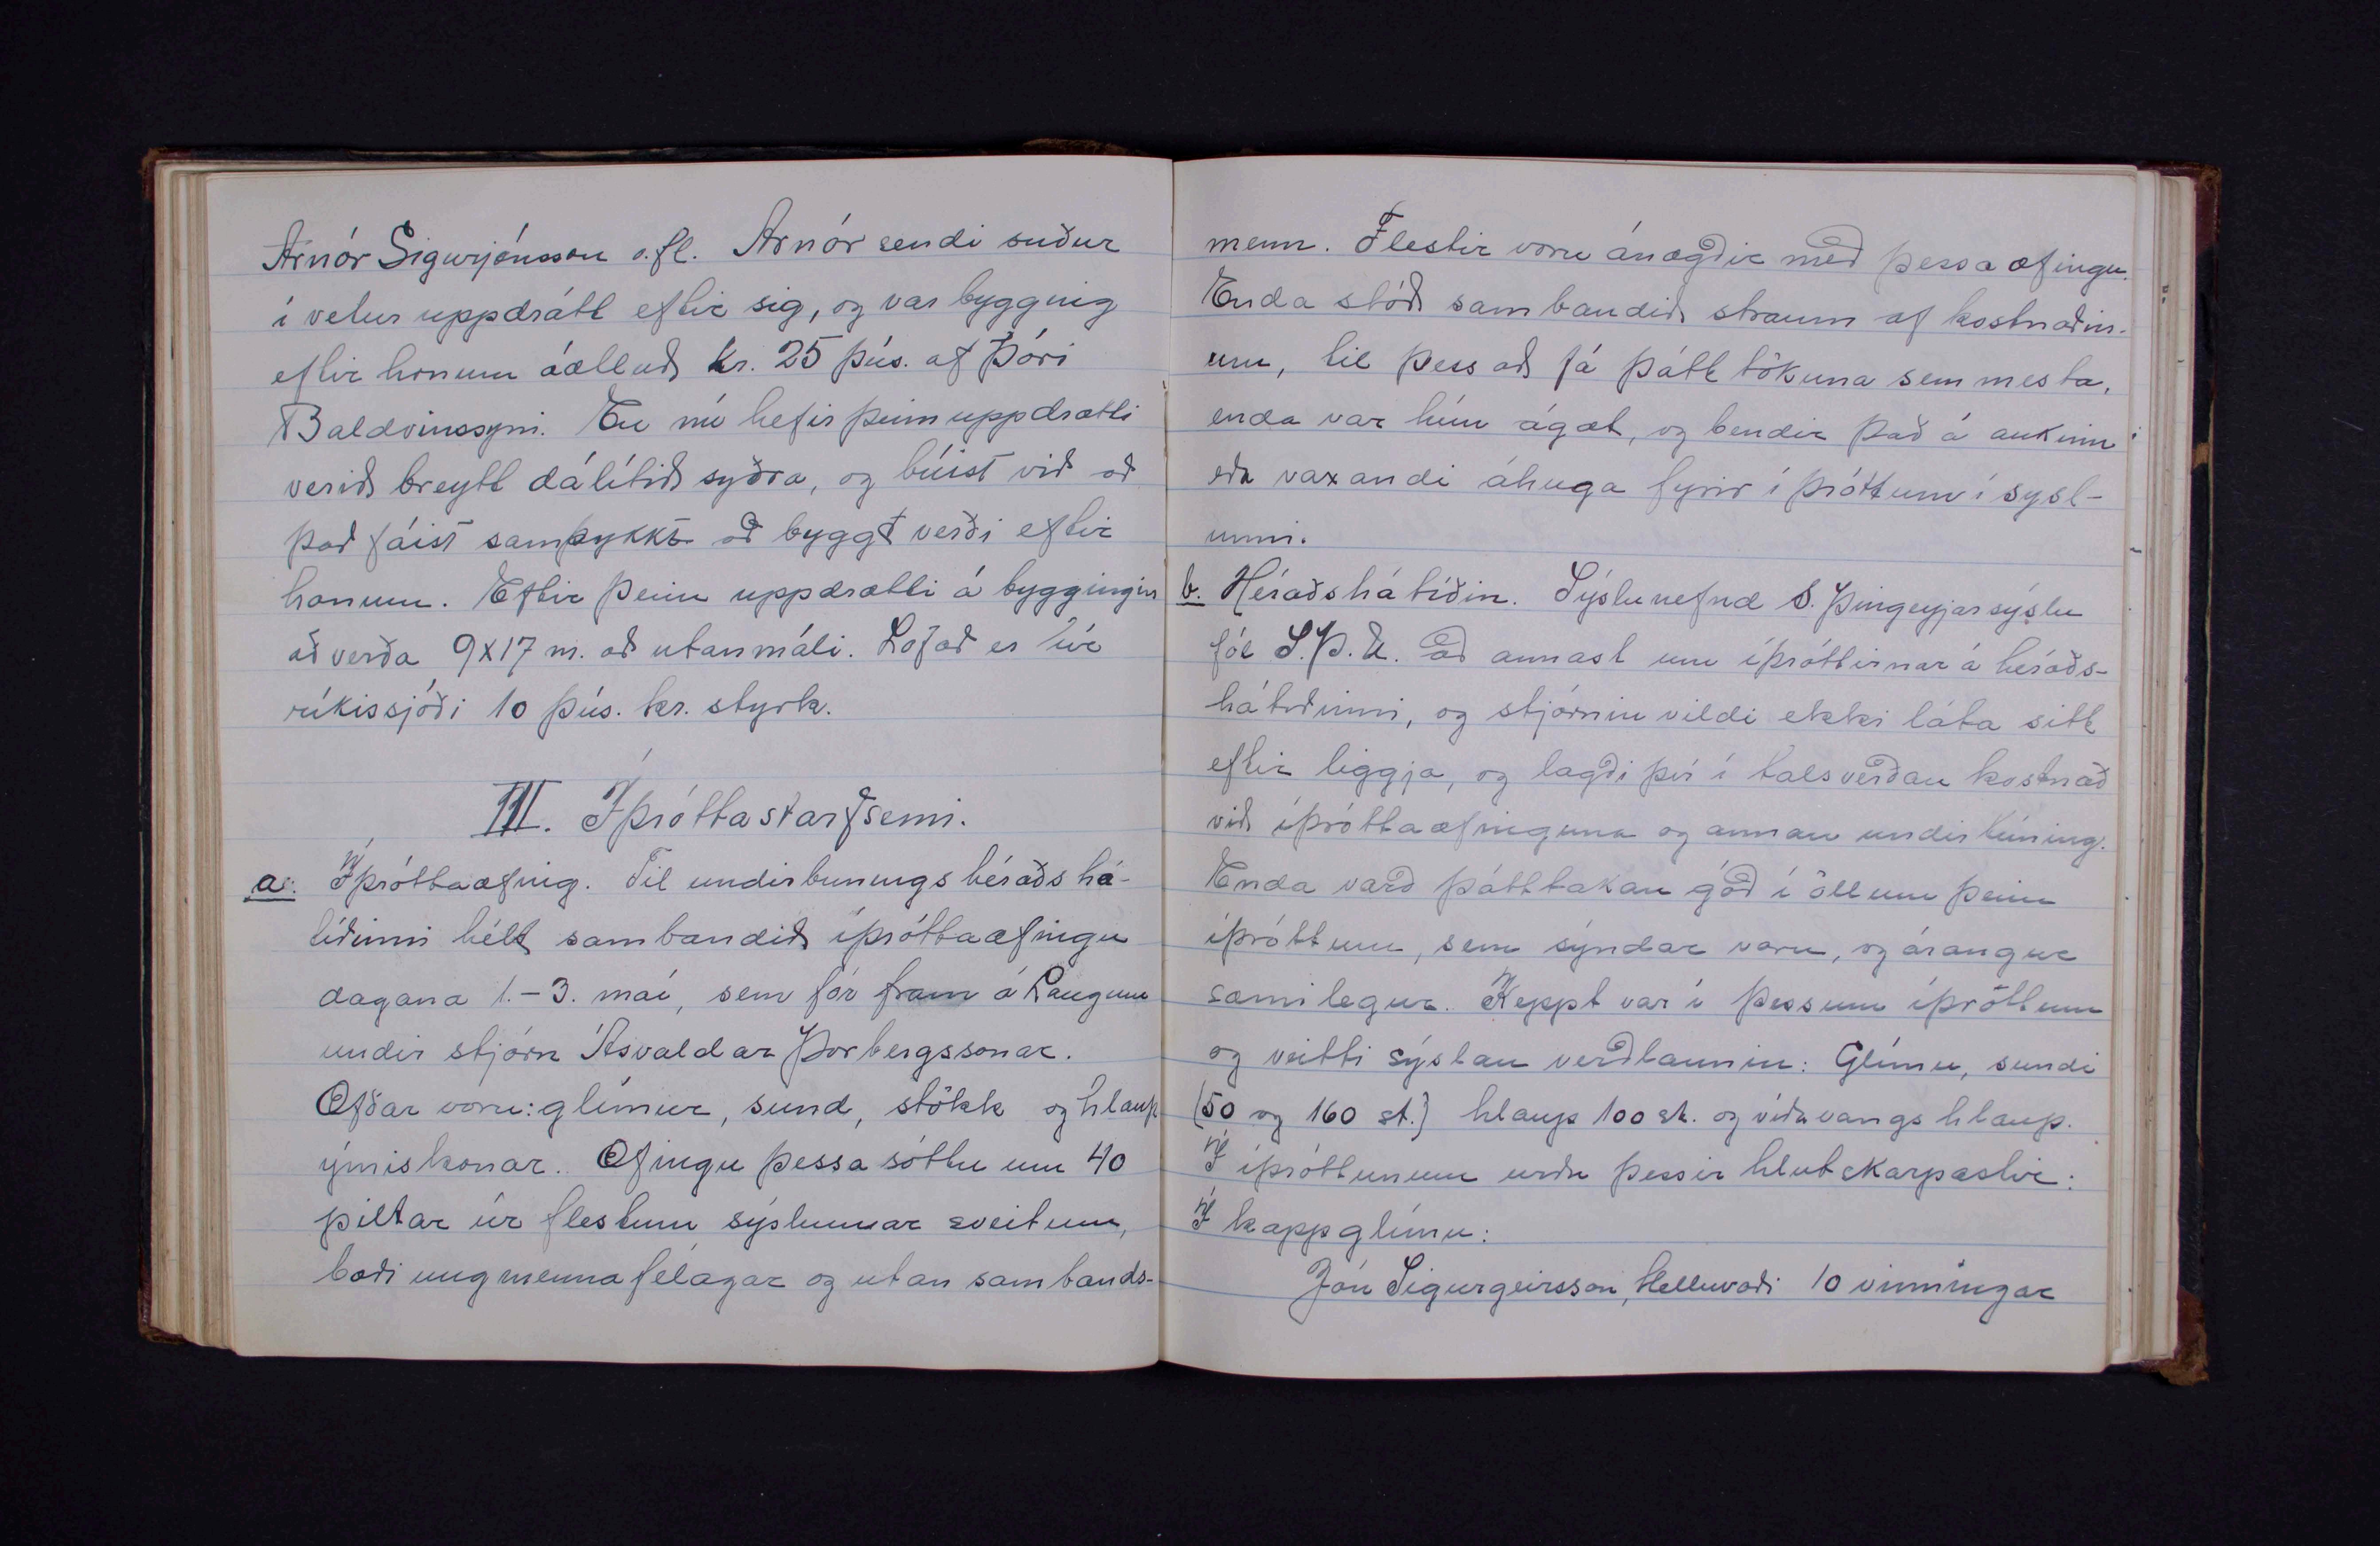 Arnór Sigurjónsson o.fl. Arnór sendi suður
í vetur uppdrátt eftir sig, og var bygging
eftir honum áætluð kr. 25 þús. af Þóri
Baldvinssyni. En nú hefir þeim uppdrætti
verið breytt dálítið syðra, og búist við að
það fáist samþykkt að byggt verði eftir
honum. Eftir þeim uppdrætti á byggingin
að verða 9x17 m. að utanmáli. Lofað er úr
ríkissjóði 10 þús. kr. styrk.
III. Íþróttastarfsemi.
a. Íþróttaæfing. Til undirbunings héraðshá-
tíðinni hélt sambandið íþróttaæfingu
dagana 1.-3. maí, sem fór fram á Laugum
undir stjórn Ásvaldar Þorbergssonar.
Æfðar voru: glímur, sund, stökk og hlaup
ýmiskonar. Æfingu þessa sóttu um 40
piltar úr flestum sýslunnar sveitum,
bæði ungmennafélagar og utan sambands-
menn. Flestir voru ánægðir með þessa æfingu.
Enda stóð sambandið straum af kostnaðin-
um, til þess að fá þátttökuna sem mesta,
enda var hún ágæt, og bendir það á aukinn
eða vaxandi áhuga fyrir íþróttum í sysl-
unni.
b. Héraðshátíðin. Sýslunefnd S. Þingeyjarsýslu
fól S.Þ.U. að annast um íþróttirnar á héraðs-
hátíðinni, og stjórnin vildi ekki láta sitt
eftir liggja, og lagði því í talsverðan kostnað
við íþróttaæfinguna og annan undirbúning.
Enda varð þátttakan góð í öllum þeim
íþróttum, sem sýndar voru, og árangur
sæmilegur. Keppt var í þessum íþróttum
og veitti sýslan verðlaunin: Glímu, sundi
(50 og 160 st.) hlaup 100 st. og víðavangshlaup.
Í íþróttunum urðu þessir hlutskarpastir:
Í kappglímu:
Jón Sigurgeirsson, Helluvaði 10 vinningar